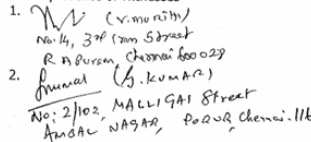 1. (V. MURITHI)
No. 14, 3rd Cross Street
R A Puram, Chennai 600028
2. (S. KUMAR)
No: 2/102, MALLIGAI Street
AMBAL NAGAR, PORUR, Chennai. 116